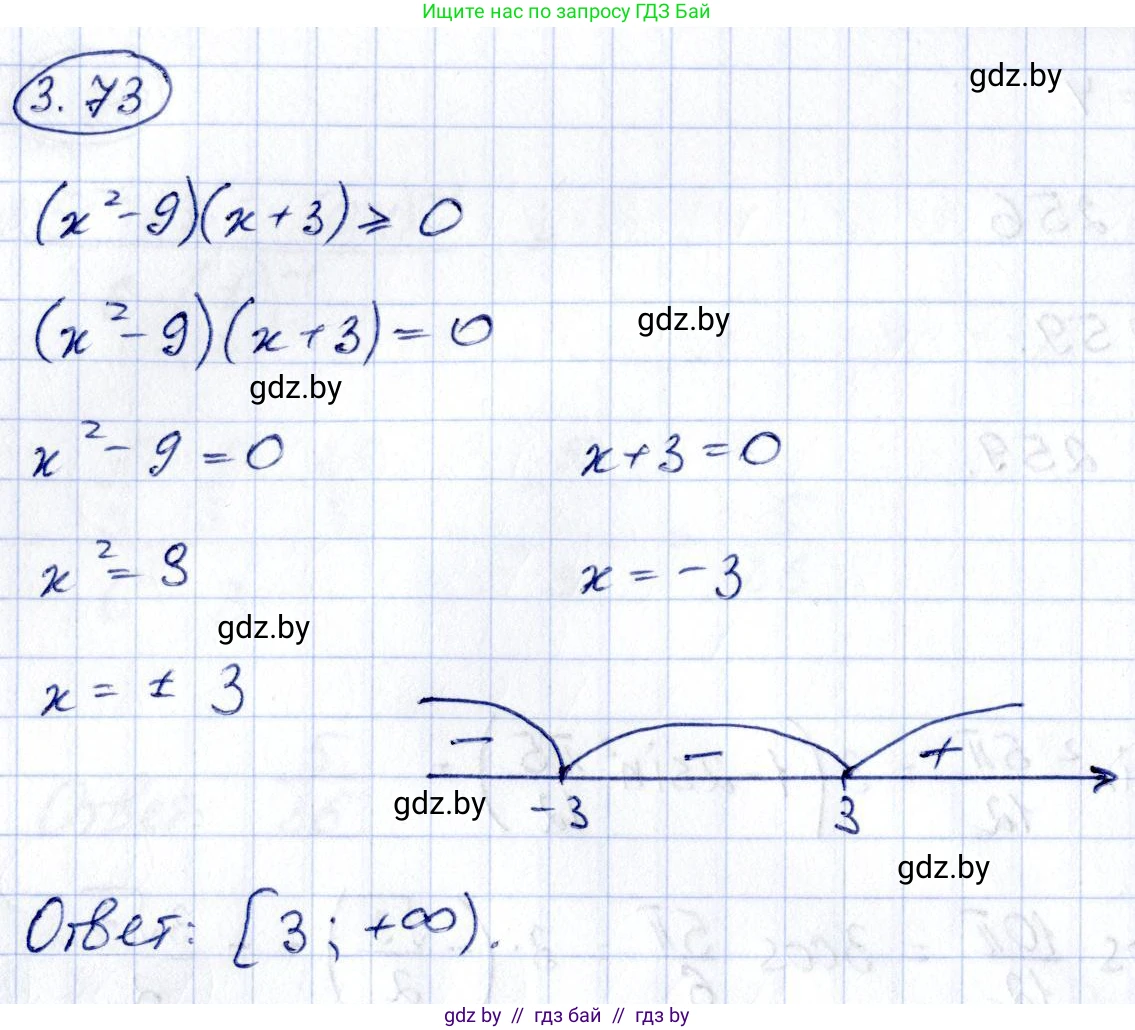 Ищите нас по запросу ГДЗ Бай
3.73
gdz.by
(x²-9)(x+3)⩾0
(x²-9)(x+3)=0
gdz.by
gdz.by
x²-9=0 x+3=0
x²=9 x=-3
gdz.by
x=±3
- - +
gdz.by
-3 3
gdz.by
Ответ: [3; +∞).
gdz.by // гдз бай // гдз by